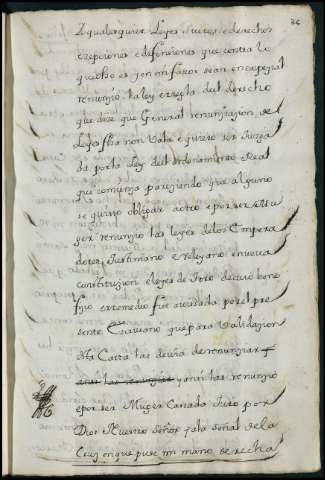 36
Z quales quier Leyes fueros e derechos
exepciones e defensiones que contra lo
que dho es y en mi favor sean en espeçial
renunçio la ley e regla del derecho
que dize que General renunziazion de
Leyes fha non Vala e quiero ser Juzga
da por la Ley del ordenamiento Real
que comienza pareziendo que alguno
se quiso obligar a otro e por ser Mu
ger renunzio las leyes de los Empera
dores Justiniano e Veleyano e nueva
constituzion e leyes de Toro de cuio bene
fizio e remedio fue avisada por el pre
sente Escrivano que para Validazion
desta Carta las devia de renunziar y
assi las renunzio y assi las renunzio
e por ser Muger Casada Juro por
Dios Nuestro Señor y a la Señal de la
Cruz en que puse mi mano derecha